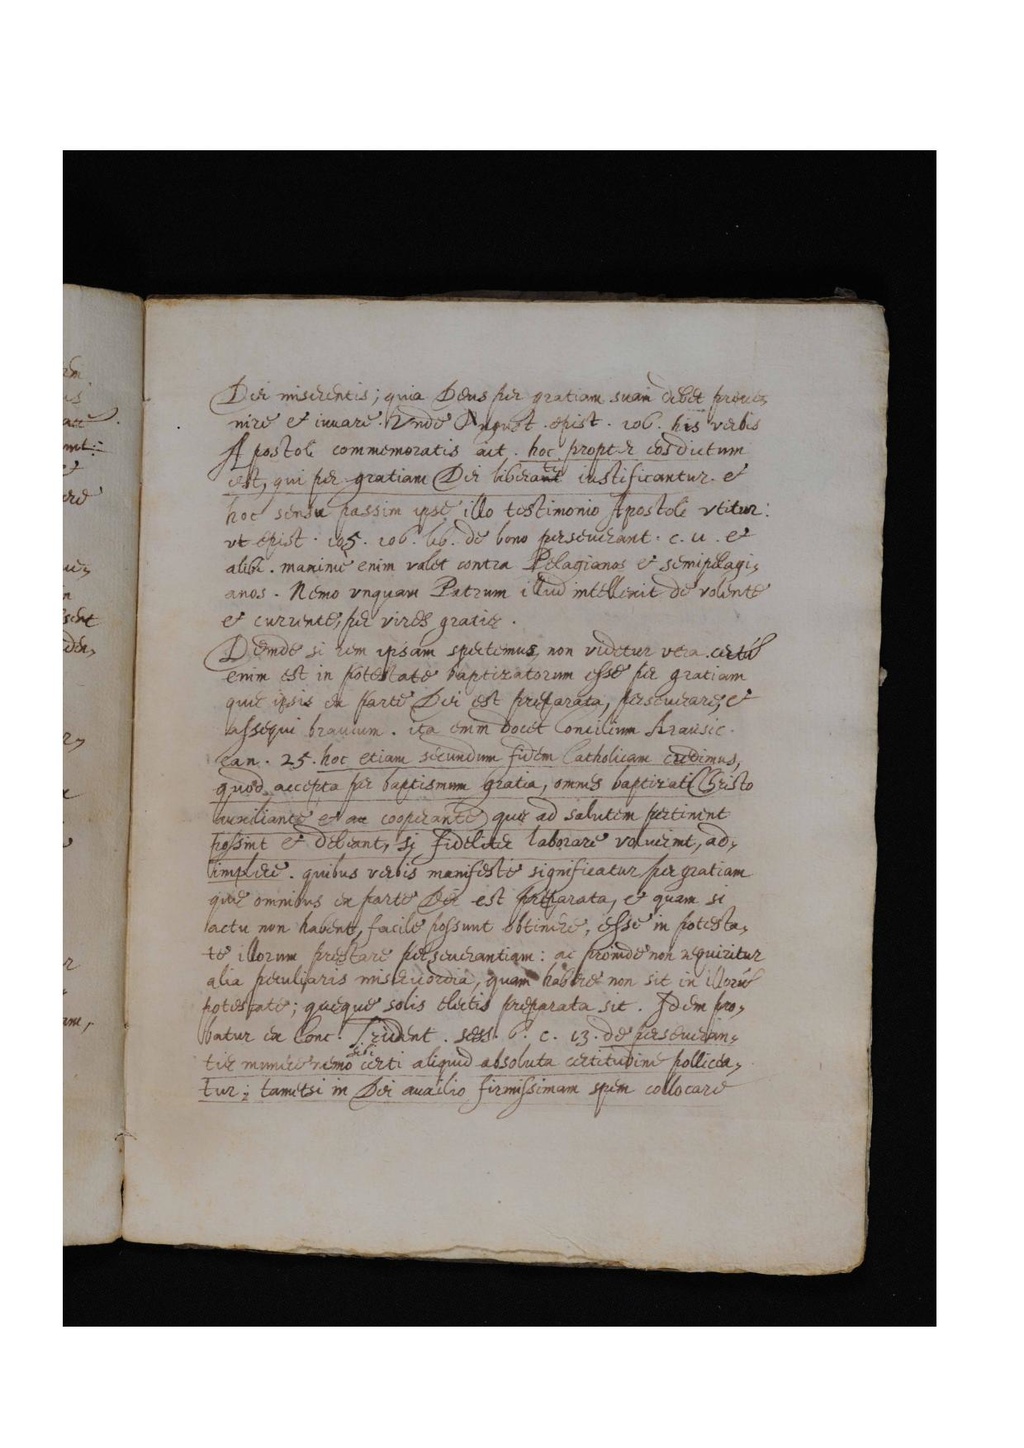 Dei miserentis; quia Deus per gratiam suam debet preue,
nire et iuuare. Vnde August. epist. 106. his verbis
Apostoli commemoratis ait. hoc propter eos dictum
est, qui per gratiam Dei liberante iustificantur. et
hoc sensu passim ipse illo testimonio Apostoli vtitur:
vt epist. 105. 106. lib. de bono perseuerant. c. 11. et
alibi. maxime enim valet contra Pelagianos et semipelagi,
anos. Nemo vnquam Patrum illud intellexit de volente
et currente, per vires gratie.
Deinde si rem ipsam spectemus, non videtur vera. certū
enim est in potestate baptizatorum esse per gratiam
que ipsis ex parte Dei est preparata, perseuerare, et
assequi brauium. ita enim docet Concilium Arausic.
can. 25. hoc etiam secundum fidem Catholicam credimus,
quod accepta per baptismum gratia, omnes baptizati Christo
auxiliante et cooperante que ad salutem pertinent
possint et debeant, si fideliter laborare voluerint, ad,
implere. quibus verbis manifeste significatur per gratiam
que omnibus ex parte Dei est preparata, et quam si
actu non habent, facile possunt obtinere, esse in potesta,
te illorum prestare perseuerantiam: ac proinde non requiritur
alia peculiaris misericordia, quam habere non sit in illorū
potestate; queque solis electis preparata sit. Idem pro,
batur ex Conc. Trident. sess. 6. c. 13. de perseueran,
tie munere nemo sibi certi aliquid absoluta certitudine pollicea,
tur; tametsi in Dei auxilio firmissimam spem collocare